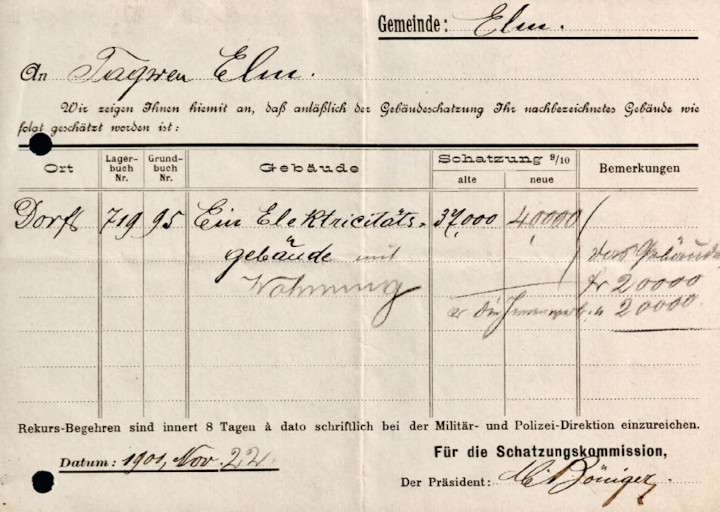 Gemeinde: Elm.
An Tagwen Elm.
Wir zeigen Ihnen hiemit an, daß anläßlich der Gebäudeschatzung Ihr nachbezeichnetes Gebäude wie
folgt geschätzt worden ist:
Ort Lager-buch Nr. Grund-buch Nr. Gebäude Schatzung 9/10 alte neue Bemerkungen
Dorf 719 95 Ein Elektricitäts- 37,000 40000
gebäude mit Gebäude
Wohnung fr 20000
20000.
Rekurs-Begehren sind innert 8 Tagen à dato schriftlich bei der Militär- und Polizei-Direktion einzureichen.
Für die Schatzungskommission,
Datum: 1901, Nov. 22.
Der Präsident: Böniger